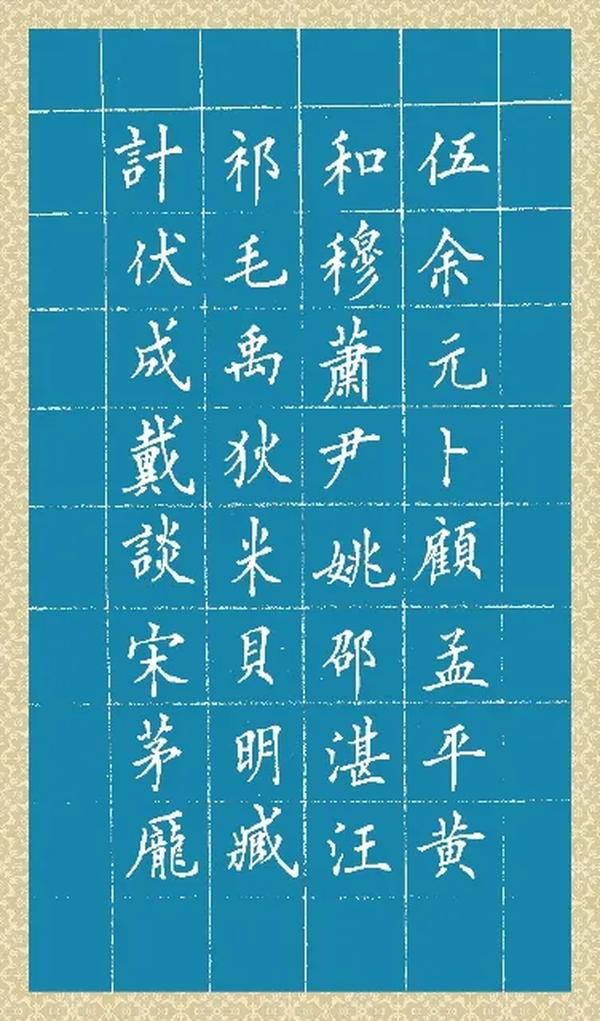 伍余元卜顧孟平黄
和穆蕭尹姚邵湛汪
祁毛禹狄米貝明臧
計伏成戴談宋茅龐